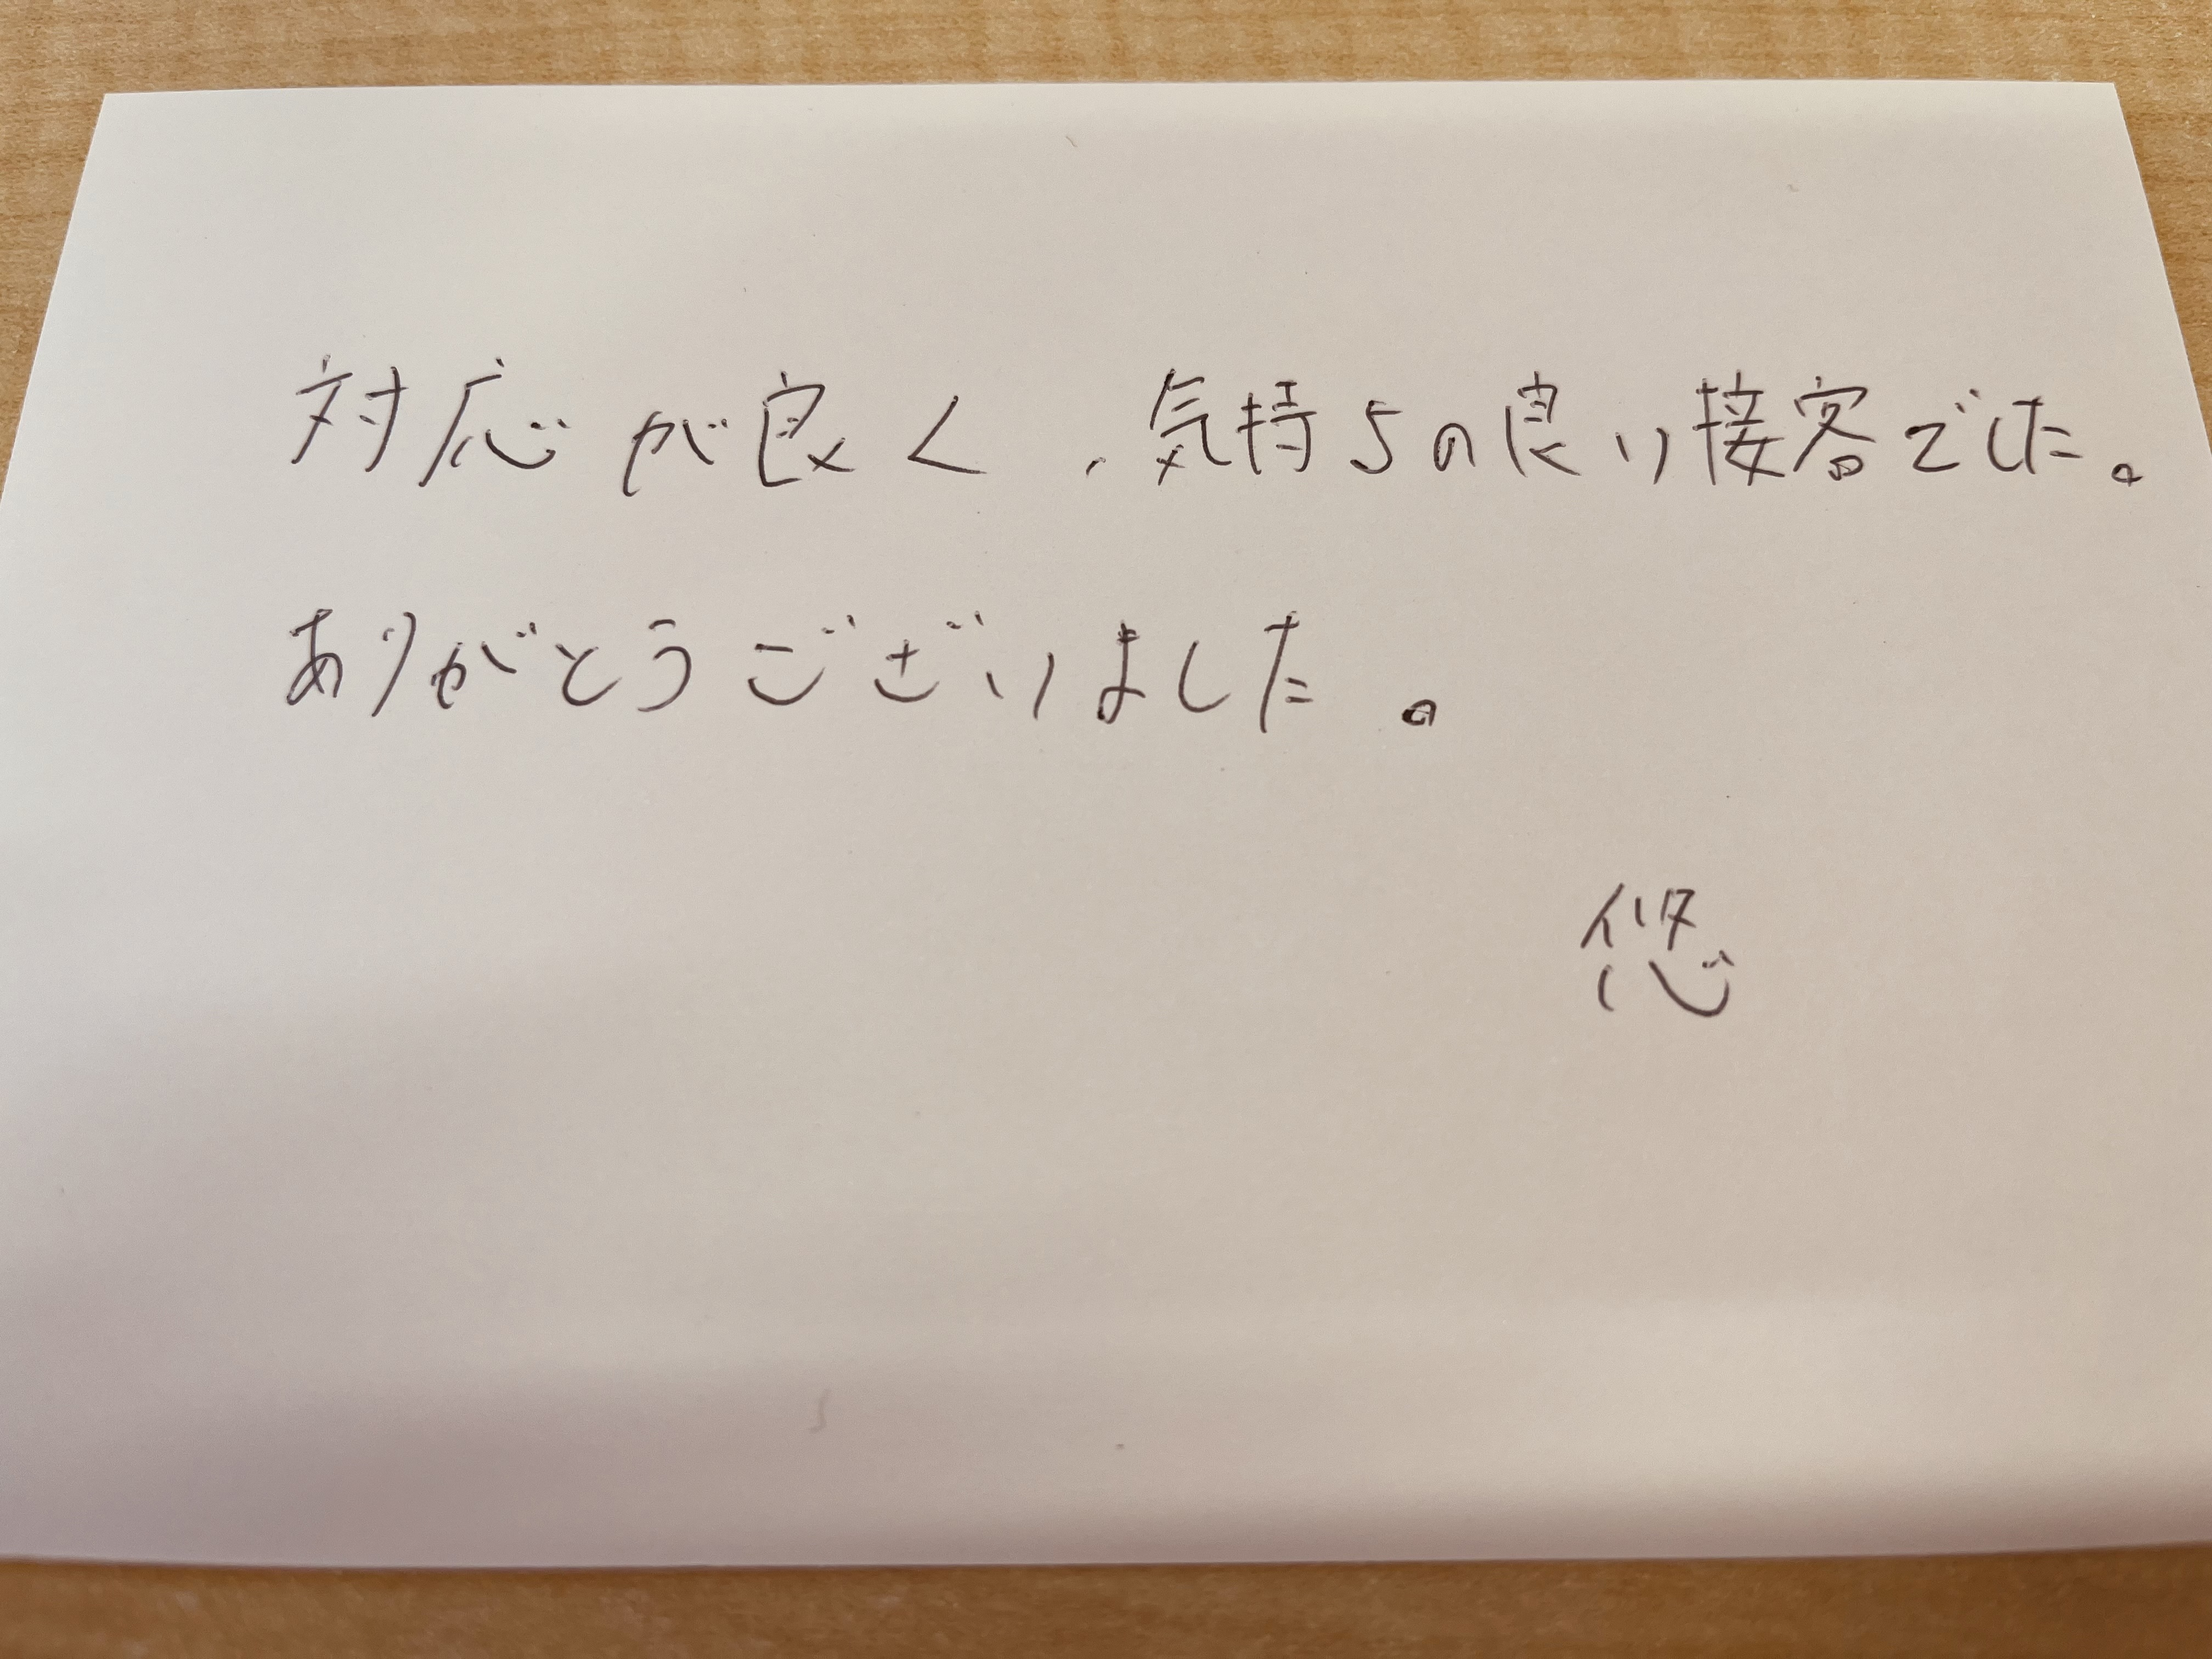 対応が良く、気持ちの良い接客でした。
ありがとうございました。
悠